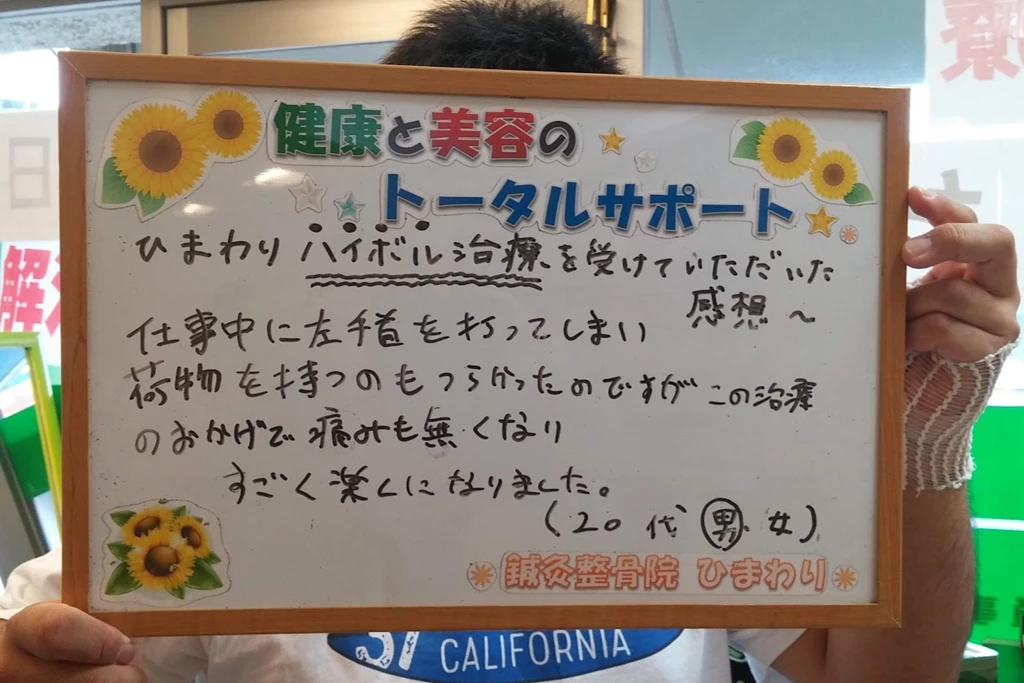 健康と美容の
トータルサポート
ひまわりハイボル治療を受けていただいた
感想～
仕事中に左手首を打ってしまい
荷物を持つのもつらかったのですが この治療
のおかげで痛みも無くなり
すごく楽になりました。
(20代 男・女)
鍼灸整骨院 ひまわり
37
CALIFORNIA